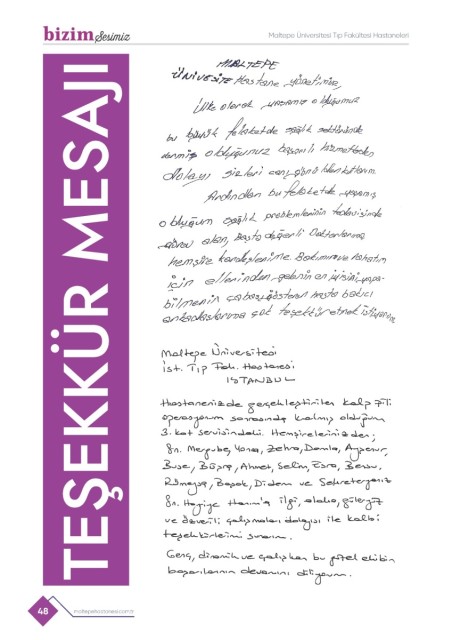 bizim Sesimiz
Maltepe Üniversitesi Tıp Fakültesi Hastaneleri
TEŞEKKÜR MESAJI
MALTEPE
ÜNİVESİTE Hastane yönetimine,
Ülke olarak yaşamış olduğumuz
bu büyük felakette sağlık sektöründe
vermiş olduğunuz başarılı hizmetlerden
dolayı sizleri canı gönülden kutlarım.
Ardından bu felakette yaşamış
olduğum sağlık problemlerinin tedavisinde
görev alan, Başta değerli Doktorlarıma
hemşire kardeşlerime Bakımıma ve Rahatım
için ellerinden gelenin en iyisini yapa-
bilmenin çabasını gösteren hasta bakıcı
arkadaşlarıma çok teşekkür etmek istiyorum
Maltepe Üniversitesi
İst. Tıp Fak. Hastanesi
İSTANBUL
Hastanenizde gerçekleştirilen kalp pili
operasyonu sonrasında kalmış olduğum
3. kat servisindeki Hemşirelerinizden;
Sn. Mergube, Yonca, Zehra, Damla, Ayşenur,
Buse, Büşra, Ahmet, Selin, Esra, Bensu,
Rümeysa, Başak, Didem ve Sekreteriniz
Sn. Hanım'a ilgi, alaka, güleryüz
ve özverili çalışmaları dolayısı ile kalbi
teşekkürlerimi sunarım.
Genç, dinamik ve çalışkan bu güzel ekibin
başarılarının devamını diliyorum.
48
maltepehastanesi.com.tr